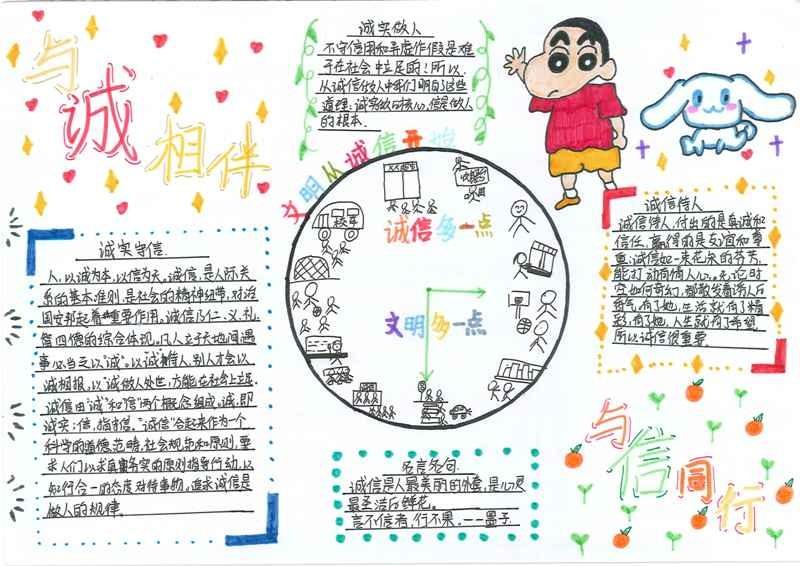 与诚相伴
诚实守信
人,以诚为本,以信为天。诚信,是人际关
系的基本准则,是社会的精神纽带,对治
国安邦起着重要作用。诚信乃仁、义、礼、
智四德的综合体现。凡人立于天地间遇
事必当之以"诚"。以诚待人,别人才会以
诚相报,以诚做人处世,方能在社会上立足.
诚信由"诚"和"信"两个概念组成。诚,即
诚实;信,指守信。"诚信"合起来作为一个
科学的道德范畴,社会规范和原则,要
求人们以求真务实的原则指导行动,以
知行合一的态度对待事物。追求诚信是
做人的规律。
诚实做人
不守信用和弄虚作假是难
于在社会中立足的!所以
从诚信做人中我们明白了这些
道理:诚实做的核心,信是做人
的根本.
文明从诚信开始
诚信多一点
文明多一点
校车
名言名句
诚信是人最美丽的外套,是心灵
最圣洁的鲜花。
言不信者,行不果。——墨子
诚信待人
诚信待人,付出的是真诚和
信任,赢得的是友谊和尊
重;诚信如一束花朵的芬芳,
能打动有情人心。无论时
空如何
香气.有了她,生活就有了精
彩,有了她,人生就有了希望
所以诚信很重要
与信同行